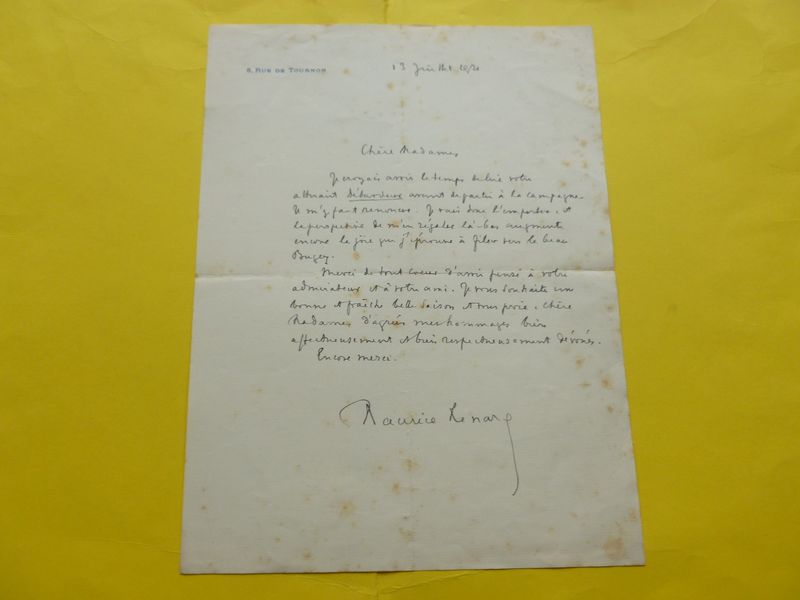 6, RUE DE TOURNON
13 Juillet
Chère Madame,
Je croyais avoir le temps de lire votre
attrayant avant de partir à la campagne.
Il m'y faut renoncer. Je vais donc l'emporter, et
la perspective de m'en régaler là-bas augmente
encore la joie que j'éprouve à filer vers le beau
Bugey.
Merci de tout coeur d'avoir pensé à votre
admirateur et à votre ami. Je vous souhaite une
bonne et fraîche belle saison et vous prie, chère
Madame, d'agréer mes hommages bien
affectueusement et bien respectueusement dévoués.
Encore merci.
Maurice Renard